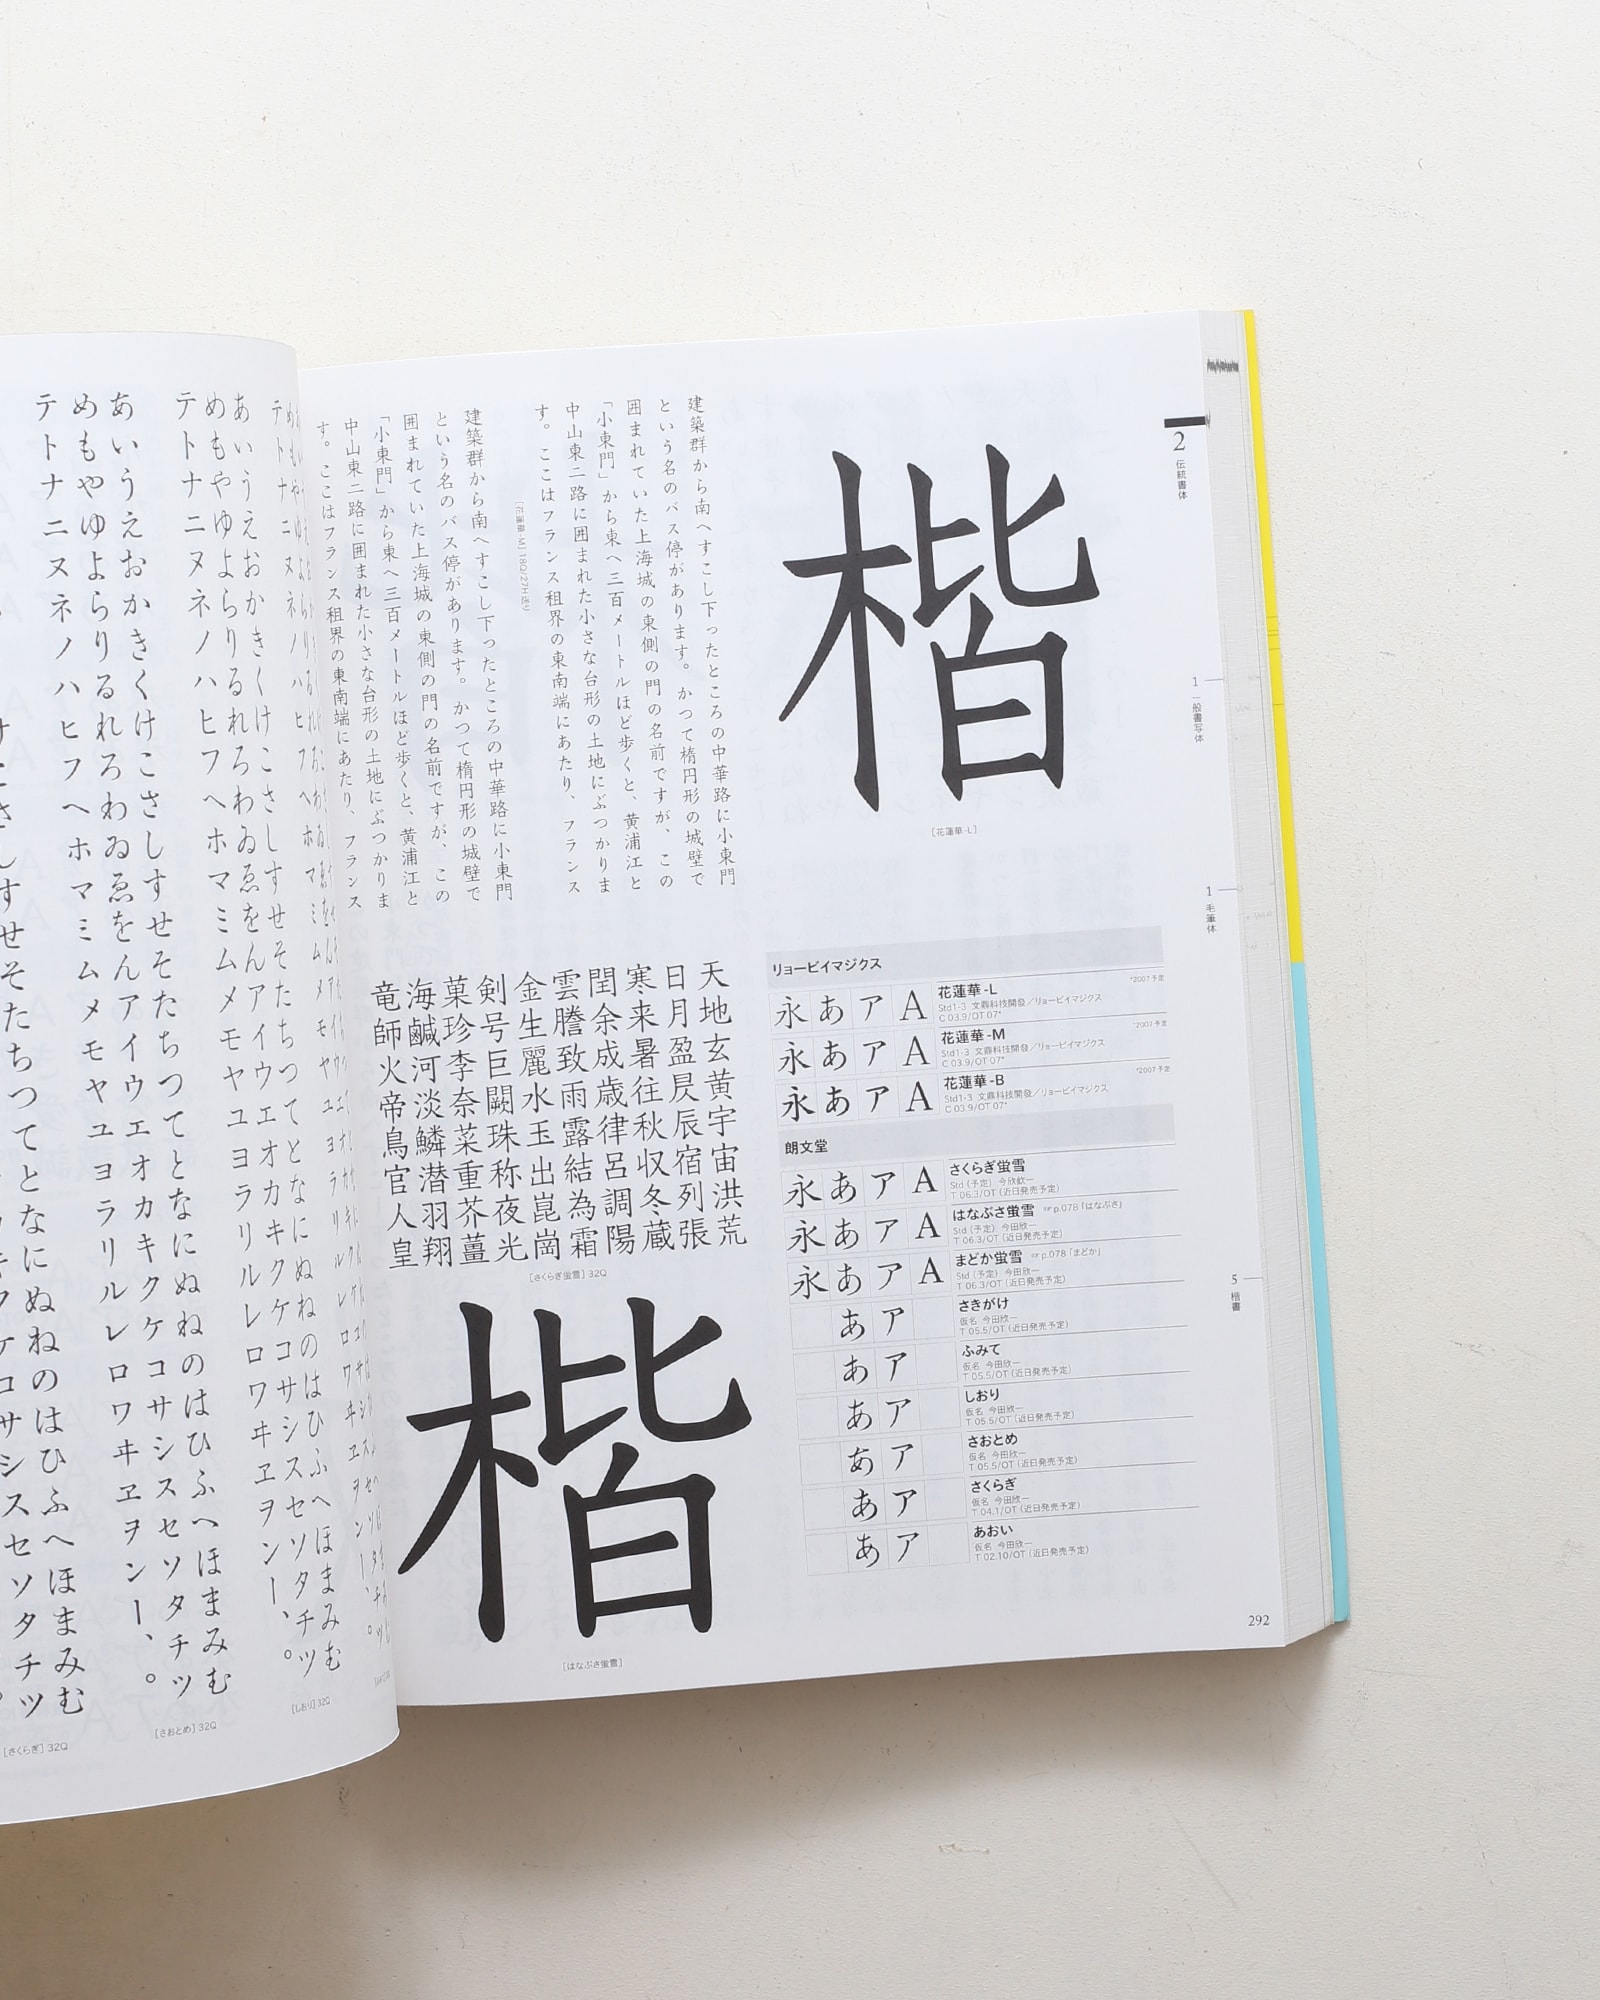 2 伝統書体
1 一般書写体
1 毛筆体
5 楷書
楷
[花蓮華-L]
建築群から南へすこし下ったところの中華路に小東門
という名のバス停があります。かつて楕円形の城壁で
囲まれていた上海城の東側の門の名前ですが、この
「小東門」から東へ三百メートルほど歩くと、黄浦江と
中山東二路に囲まれた小さな台形の土地にぶつかりま
す。ここはフランス租界の東南端にあたり、フランス
[花蓮華-M] 18Q/27H送り
建築群から南へすこし下ったところの中華路に小東門
という名のバス停があります。かつて楕円形の城壁で
囲まれていた上海城の東側の門の名前ですが、この
「小東門」から東へ三百メートルほど歩くと、黄浦江と
中山東二路に囲まれた小さな台形の土地にぶつかりま
す。ここはフランス租界の東南端にあたり、フランス
リョービイマジクス
永あアA 花蓮華-L *2007予定
Std1-3 文鼎科技開發/リョービイマジクス
C 03.9/OT 07*
永あアA 花蓮華-M *2007予定
Std1-3 文鼎科技開發/リョービイマジクス
C 03.9/OT 07*
永あアA 花蓮華-B *2007予定
Std1-3 文鼎科技開發/リョービイマジクス
C 03.9/OT 07*
朗文堂
永あアA さくらぎ蛍雪
Std(予定) 今田欣一
T 06.3/OT(近日発売予定)
永あアA はなぶさ蛍雪 ☞p.078「はなぶさ」
Std(予定) 今田欣一
T 06.3/OT(近日発売予定)
永あアA まどか蛍雪 ☞p.078「まどか」
Std(予定) 今田欣一
T 06.3/OT(近日発売予定)
あア さきがけ
仮名 今田欣一
T 05.5/OT(近日発売予定)
あア ふみて
仮名 今田欣一
T 05.5/OT(近日発売予定)
あア しおり
仮名 今田欣一
T 05.5/OT(近日発売予定)
あア さおとめ
仮名 今田欣一
T 05.5/OT(近日発売予定)
あア さくらぎ
仮名 今田欣一
T 04.1/OT(近日発売予定)
あア あおい
仮名 今田欣一
T 02.10/OT(近日発売予定)
天地玄黄宇宙洪荒
日月盈昃辰宿列張
寒来暑往秋収冬蔵
閏余成歳律呂調陽
雲騰致雨露結為霜
金生麗水玉出崑崗
剣号巨闕珠称夜光
菓珍李奈菜重芥薑
海鹹河淡鱗潜羽翔
竜師火帝鳥官人皇
[さくらぎ蛍雪] 32Q
楷
[はなぶさ蛍雪]
292
あいうえおかきくけこさしすせそたちつてとなにぬねのはひふへほまみむ
めもやゆよらりるれろわゐゑをんアイウエオカキクケコサシスセソタチツ
テトナニヌネノハヒフヘホマミムメモヤユヨラリルレロワヰヱヲンー、。
[しおり] 32Q
あいうえおかきくけこさしすせそたちつてとなにぬねのはひふへほまみむ
めもやゆよらりるれろわゐゑをんアイウエオカキクケコサシスセソタチツ
テトナニヌネノハヒフヘホマミムメモヤユヨラリルレロワヰヱヲンー、。
[さおとめ] 32Q
[さくらぎ] 32Q